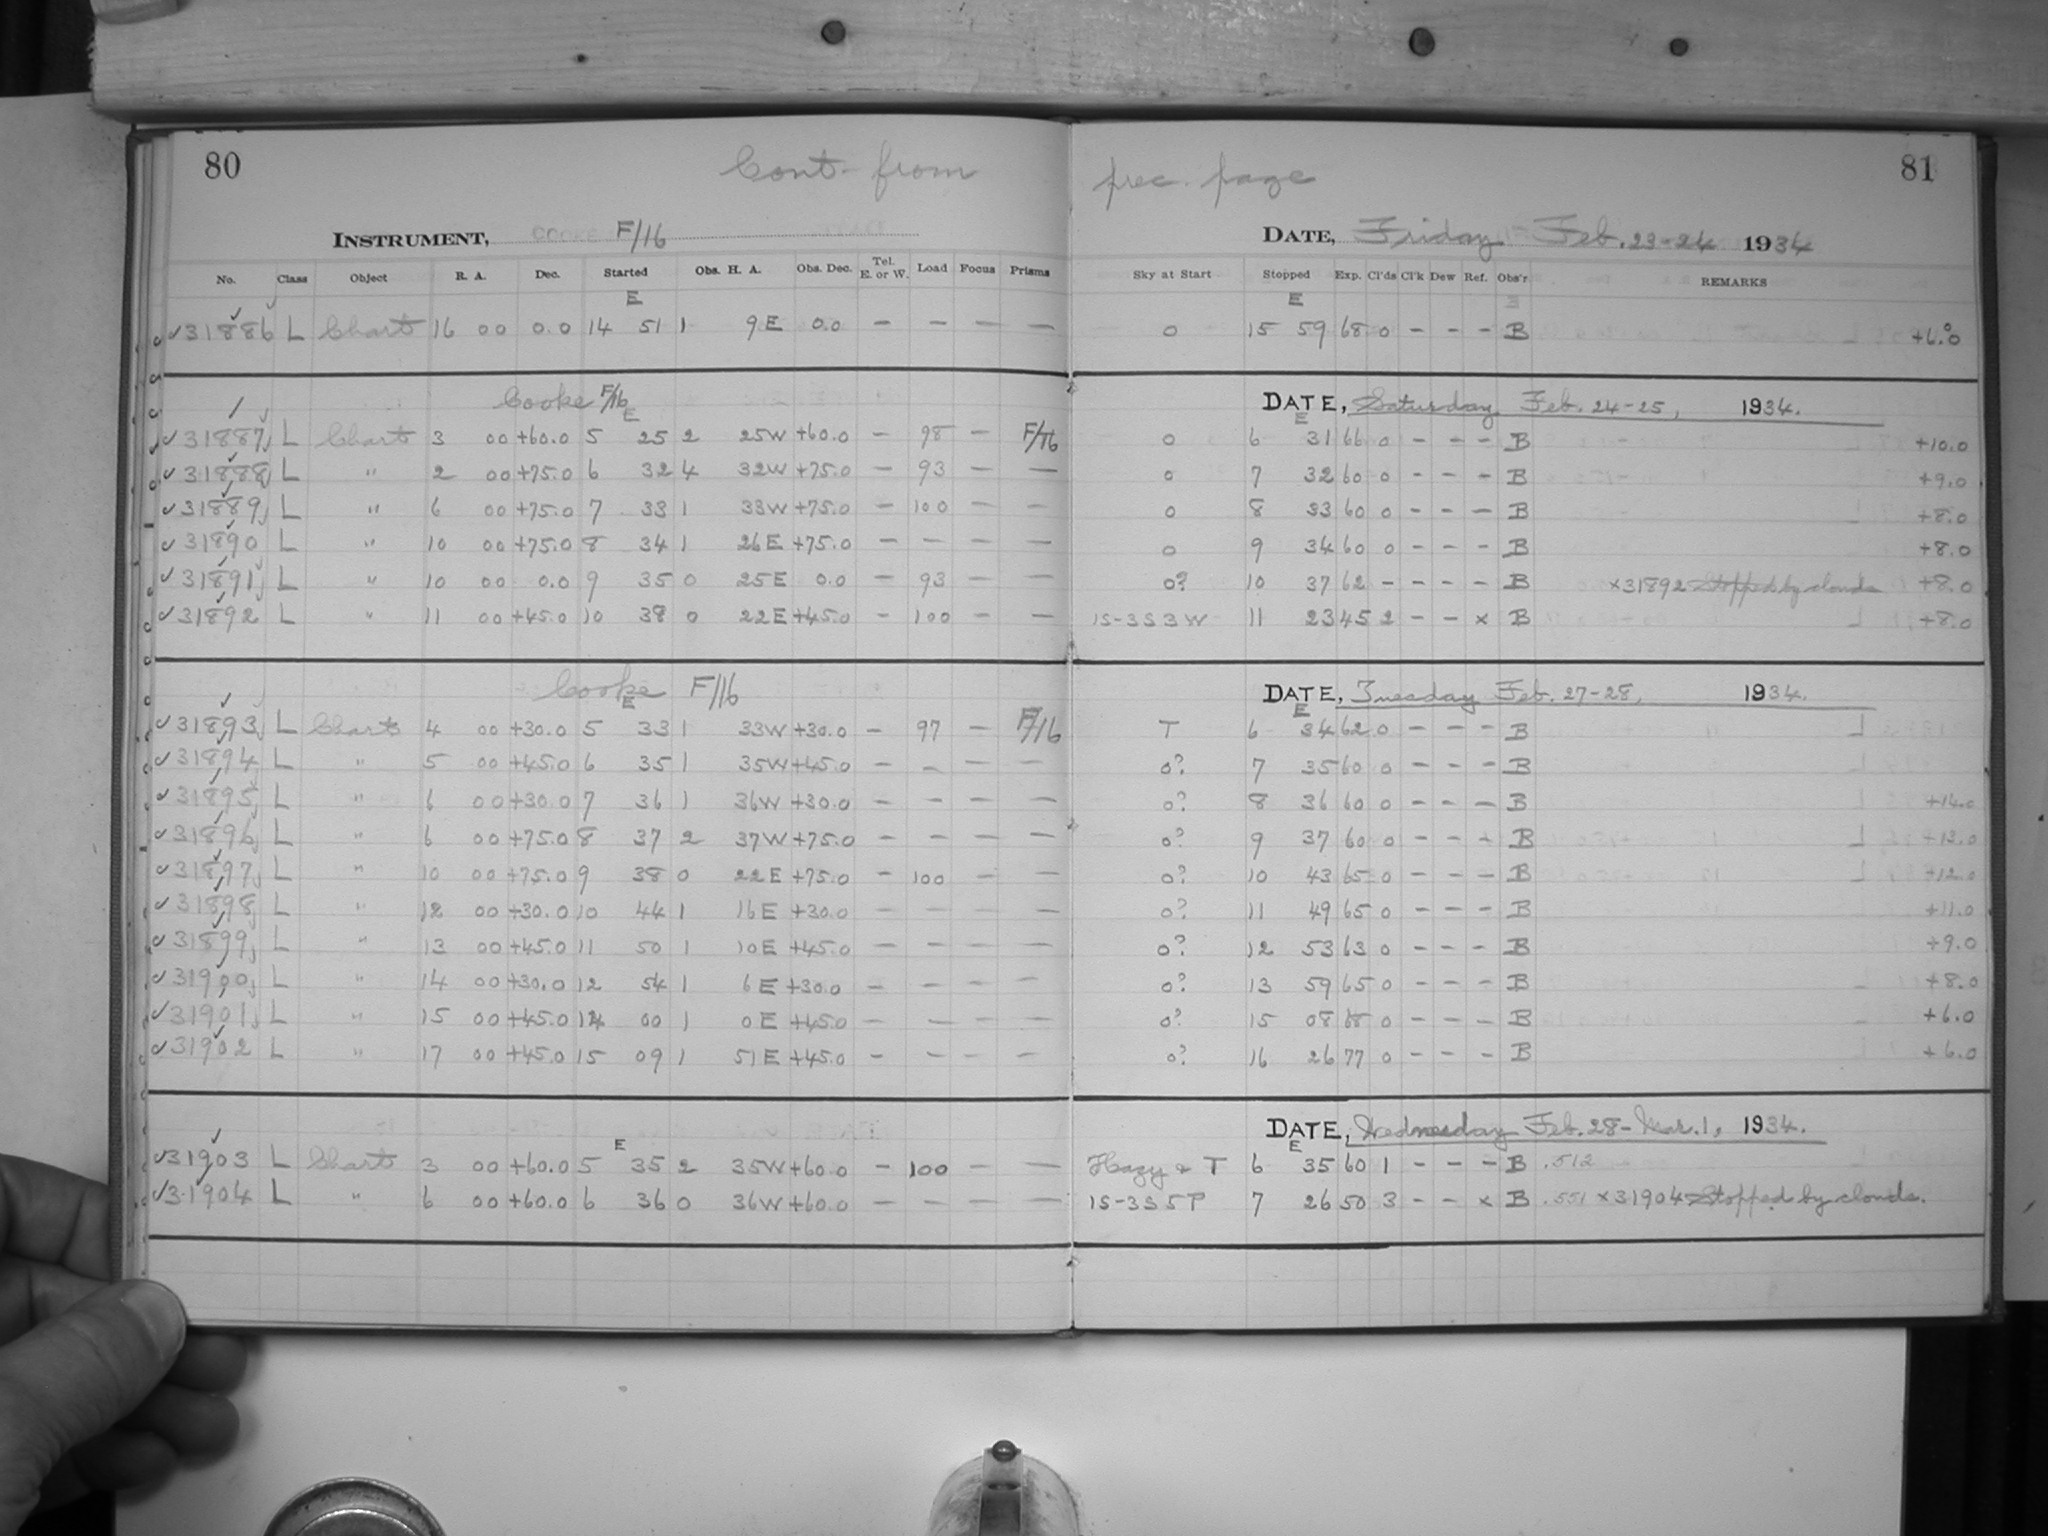 80 Cont- from prec. page 81
INSTRUMENT, COOKE F/16 DATE, Friday Feb. 23-24 1934
No. Class Object R. A. Dec. Started Obs. H. A. Obs. Dec. Tel. E. or W. Load Focus Prisms Sky at Start Stopped Exp. Cl'ds Cl'k Dew Ref. Obs'r REMARKS
E E
31886 L Chart 16 00 0.0 14 51 1 9 E 0.0 — — — — 0 15 59 68 0 - - - B +6.0
Cooke F/16 DATE, Saturday Feb. 24-25, 1934.
E E
31887 L Chart 3 00 +60.0 5 25 2 25W +60.0 — 98 — F/16 0 6 31 66 0 - - - B +10.0
31888 L " 2 00 +75.0 6 32 4 32W +75.0 — 93 — — 0 7 32 60 0 - - - B +9.0
31889 L " 6 00 +75.0 7 33 1 33W +75.0 — 100 — — 0 8 33 60 0 - - - B +8.0
31890 L " 10 00 +75.0 8 34 1 26E +75.0 — — — — 0 9 34 60 0 - - - B +8.0
31891 L " 10 00 0.0 9 35 0 25E 0.0 — 93 — — 0? 10 37 62 - - - - B ×31892 Stopped by clouds +8.0
31892 L " 11 00 +45.0 10 38 0 22E +45.0 — 100 — — 1S-3S3W 11 23 45 2 - - × B +8.0
Cooke F/16 DATE, Tuesday Feb. 27-28, 1934.
E E
31893 L Chart 4 00 +30.0 5 33 1 33W +30.0 — 97 — F/16 T 6 34 62 0 - - - B
31894 L " 5 00 +45.0 6 35 1 35W +45.0 — — — — 0? 7 35 60 0 - - - B
31895 L " 6 00 +30.0 7 36 1 36W +30.0 — — — — 0? 8 36 60 0 - - - B +14.0
31896 L " 6 00 +75.0 8 37 2 37W +75.0 — — — — 0? 9 37 60 0 - - - B +13.0
31897 L " 10 00 +75.0 9 38 0 22E +75.0 — 100 — — 0? 10 43 65 0 - - - B +12.0
31898 L " 12 00 +30.0 10 44 1 16E +30.0 — — — — 0? 11 49 65 0 - - - B +11.0
31899 L " 13 00 +45.0 11 50 1 10E +45.0 — — — — 0? 12 53 63 0 - - - B +9.0
31900 L " 14 00 +30.0 12 54 1 6E +30.0 — — — — 0? 13 59 65 0 - - - B +8.0
31901 L " 15 00 +45.0 14 00 1 0E +45.0 — — — — 0? 15 08 68 0 - - - B +6.0
31902 L " 17 00 +45.0 15 09 1 51E +45.0 — — — — 0? 16 26 77 0 - - - B +6.0
DATE, Wednesday Feb. 28-Mar. 1, 1934.
E E
31903 L Chart 3 00 +60.0 5 35 2 35W +60.0 — 100 — — Hazy & T 6 35 60 1 - - - B .512
31904 L " 6 00 +60.0 6 36 0 36W +60.0 — — — — 1S-3S5P 7 26 50 3 - - × B .551 ×31904 Stopped by clouds.